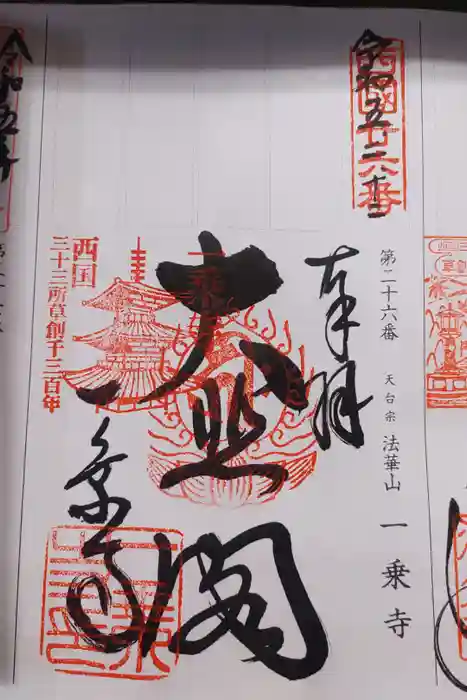 西國廿六番
令和五、二、十二
第二十六番 天台宗 法華山 一乗寺
奉拝
大悲閣
一乗寺
西国
三十三所草創千三百年
令和五年